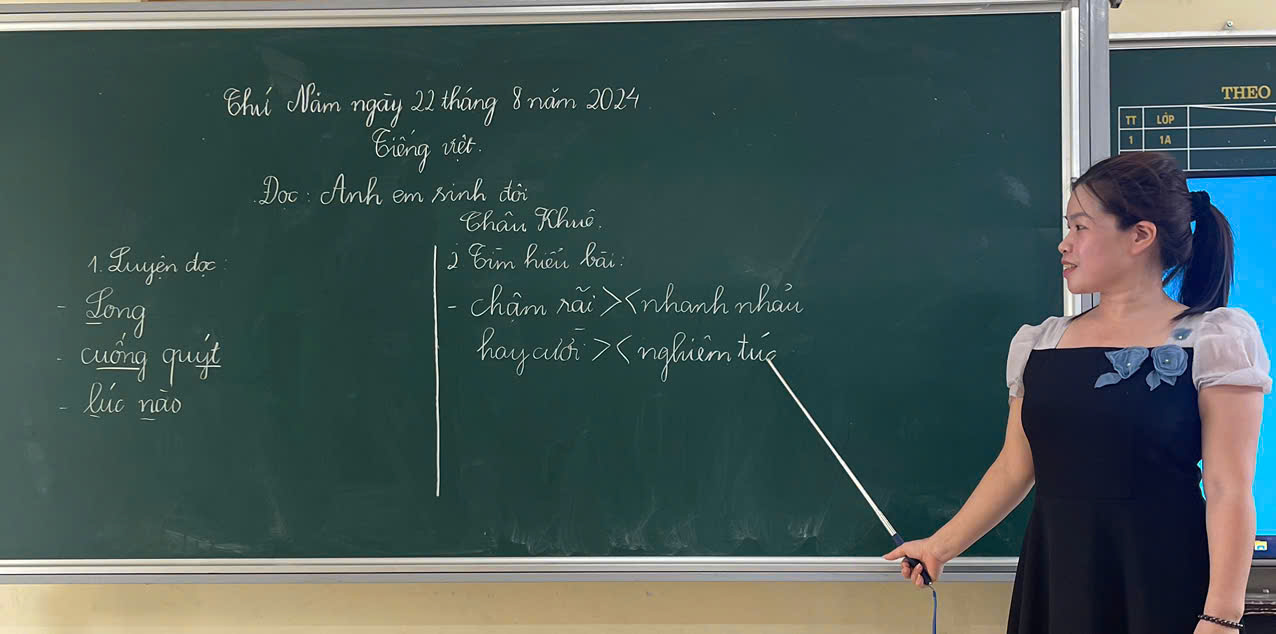 Thứ Năm ngày 22 tháng 8 năm 2024
Tiếng việt.
Đọc: Anh em sinh đôi
Châu Khuê.
1. Luyện đọc:
- Long
- cuống quýt
- lúc nào
2 Tìm hiểu bài:
- chậm rãi >< nhanh nhảu
hay cười >< nghiêm túc
THEO
TT LỚP
1 1A